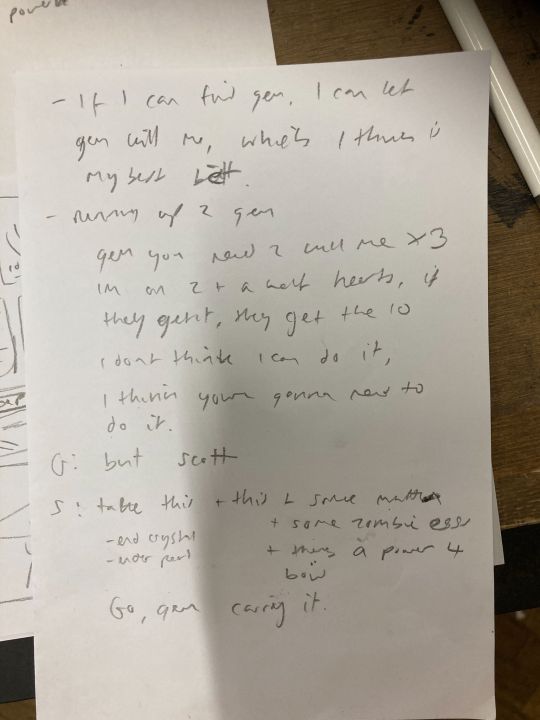 power
- If I can find gem, I can let
gem kill me, which I think is
my best bett.
- running up 2 gem
gem you need 2 kill me x3
im on 2 + a half hearts, if
they get it, they get the 10
I dont think I can do it,
I think youre gonna need to
do it.
G: but scott
S: take this + this + some
+ some zombie eggs
- end crystal
- ender pearl
+ theres a power 4
bow
Go, gem carry it.